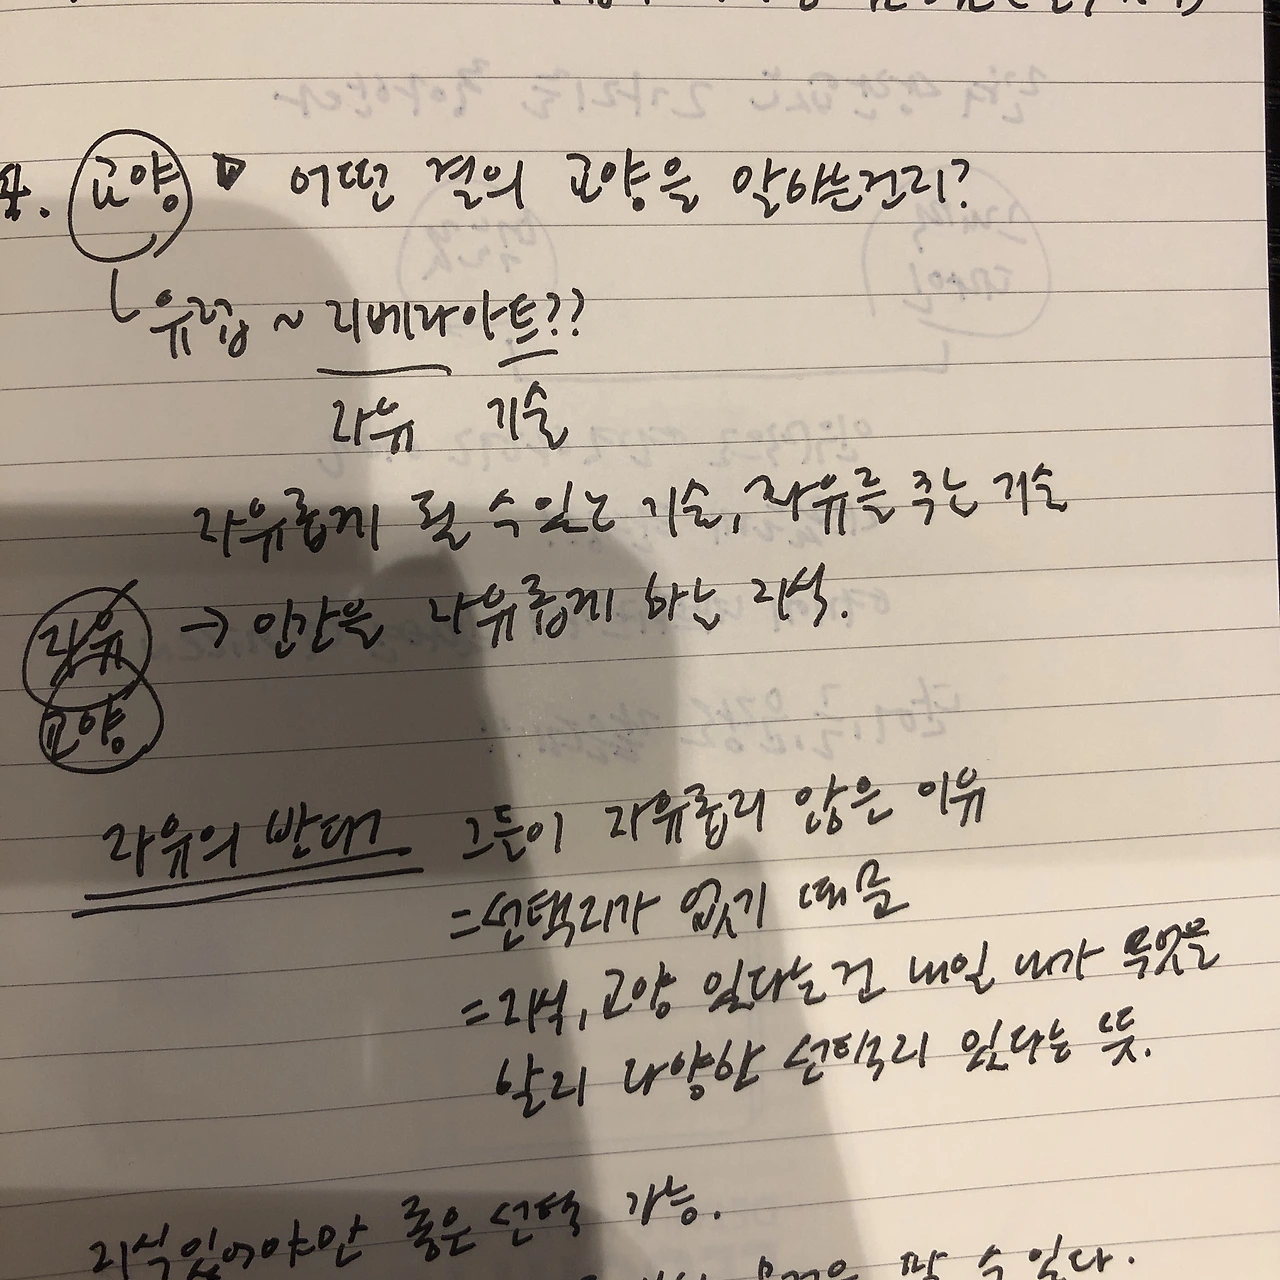 4. 교양 어떤 결의 교양을 말하는건지?
유럽 ~ 리베라아트??
자유 기술
자유롭게 될 수 있는 기술, 자유를 주는 기술
자유 → 인간을 자유롭게 하는 지식.
교양
자유의 반대 그들이 자유롭지 않은 이유
= 선택지가 없기 때문
= 지식, 교양 있다는 건 내일 내가 무엇을
할지 다양한 선택지 있다는 뜻.
지식 있어야만 좋은 선택 가능.
할 수 있다.